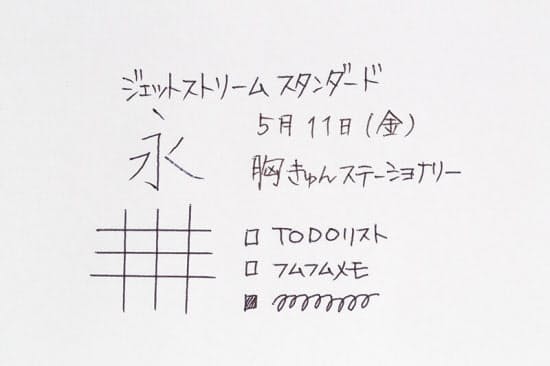 ジェットストリーム スタンダード
永
5月11日(金)
胸きゅんステーショナリー
□ TODOリスト
□ フムフムメモ
■